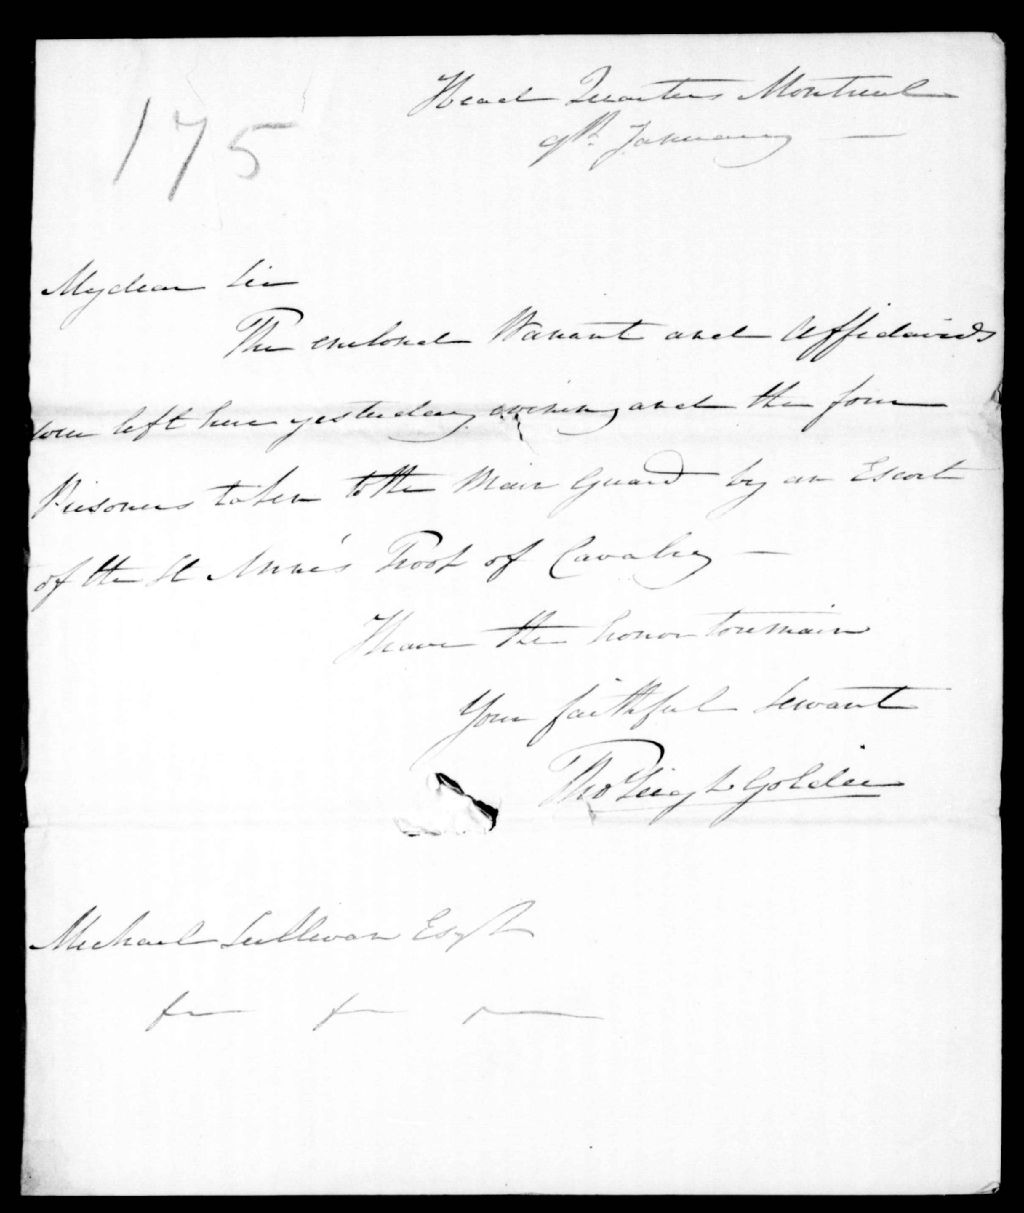 175
Head Quarters Montreal
9th January
My dear Sir
The enclosed Warrant and Affidavids
were left here yesterday evening and the four
Prisoners taken to the Main Guard by an Escort
of the St Anne's Troop of Cavalry
I have the honor to remain
Your faithful Servant
Thos Leigh Goldie
Michael Sullivan Esqr